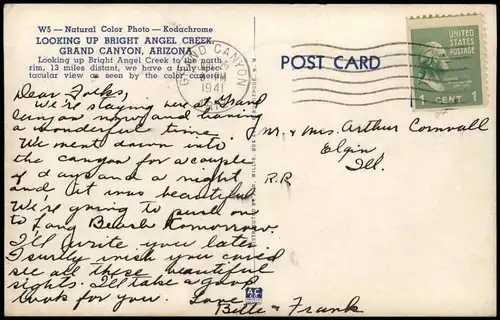 W5 — Natural Color Photo — Kodachrome
LOOKING UP BRIGHT ANGEL CREEK,
GRAND CANYON, ARIZONA
Looking up Bright Angel Creek to the north
rim, 13 miles distant, we have a truly spec-
tacular view as seen by the color camera.
GRAND CANYON
1941
POST CARD
UNITED
STATES
POSTAGE
1 CENT 1
Dear Folks,
We're staying here at Grand
Canyon now and having
a wonderful time.
We went down into
the canyon for a couple
of days and a night
and it was beautiful
We're going to push on
to Long Beach tomorrow.
I'll write you later
I surely wish you could
see all these beautiful
sights. I'll take a good
look for you. Love,
Bette & Frank
Mr. & Mrs. Arthur Cornwall
Elgin
Ill.
R.R